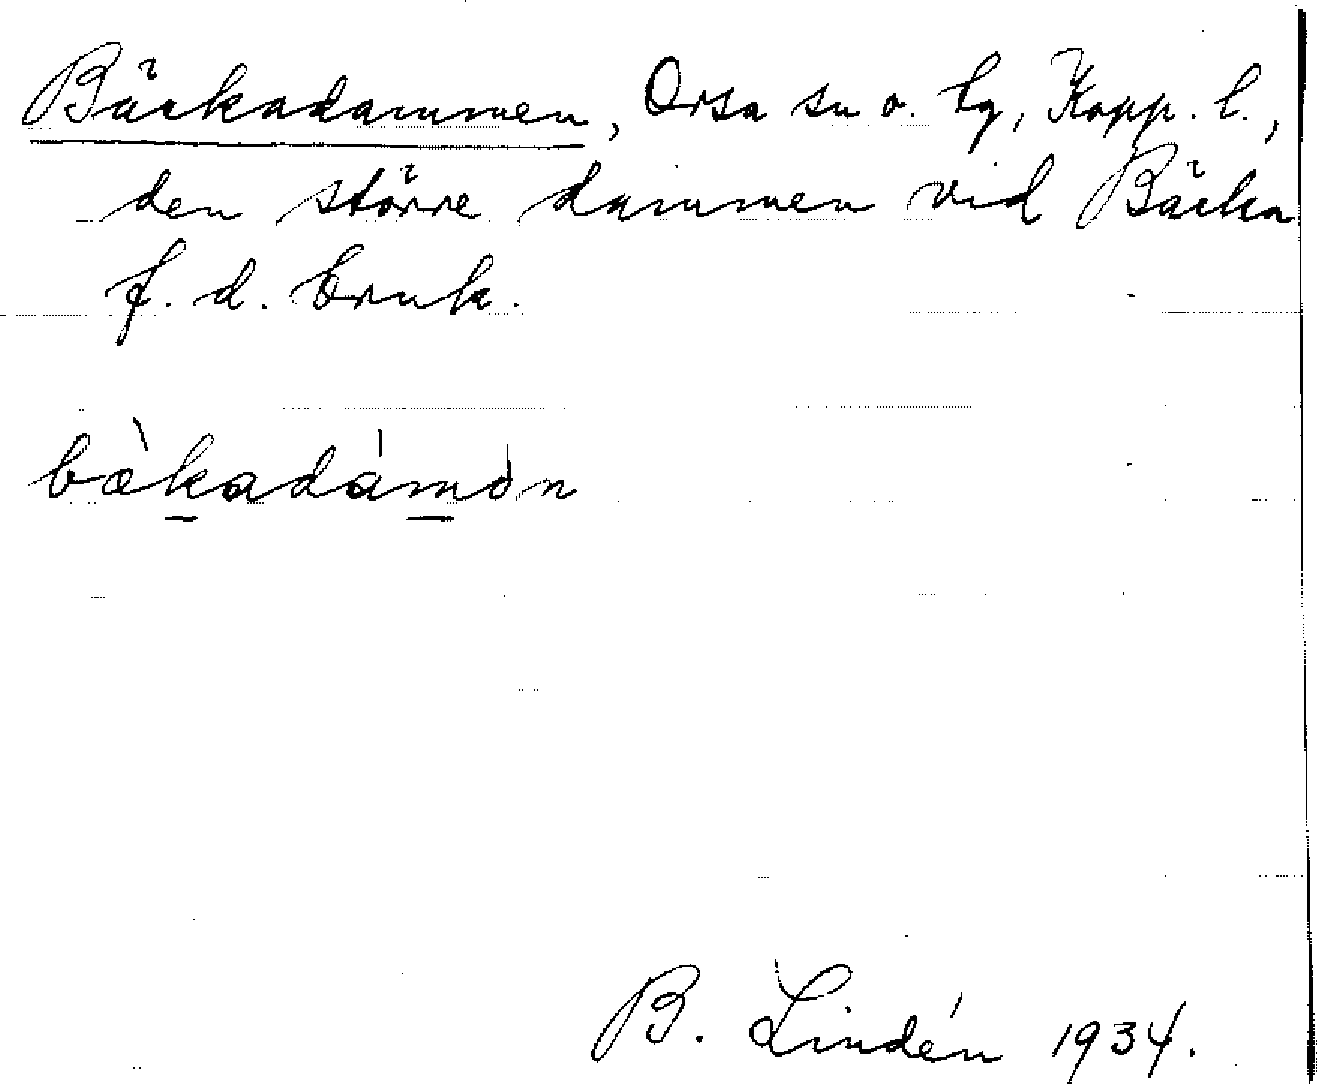 Bäckadammen, Orsa sn o. tg, Kopp. l.,
den större dammen vid Bäcka
f. d. bruk.
bæ̀kadámən
B. Lindén 1934.